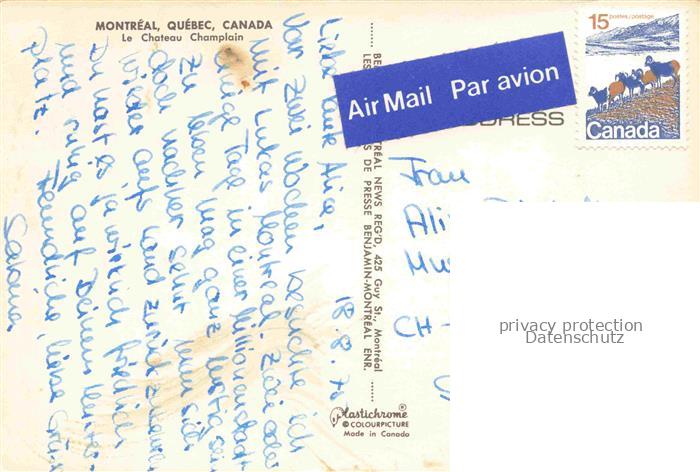 MONTRÉAL, QUÉBEC, CANADA
Le Chateau Champlain
18.8.
Liebe Alice,
Vor zwei Wochen besuchte ich
mit Lukas Montreal. Zwei oder
einige Tage in einer Millionenstadt
zu leben mag ganz lustig sein
doch nachher sehnt man sich
wieder aufs Land zurück
Du hast es ja wirklich friedlich
und ruhig auf Deinem
platz.
Freundliche, liebe Grüsse
RÉAL NEWS REG'D, 425 Guy St., Montréal
LES DE PRESSE BENJAMIN-MONTRÉAL ENR.
Plastichrome®
© COLOURPICTURE
Made in Canada
Air Mail Par avion
DRESS
15 postes/postage
Canada
Frau
Ali
CH-
privacy protection
Datenschutz